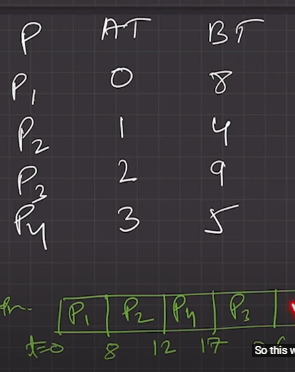 P AT BT
P1 0 8
P2 1 4
P3 2 9
P4 3 5
P1 P2 P4 P3
t=0 8 12 17
So this w